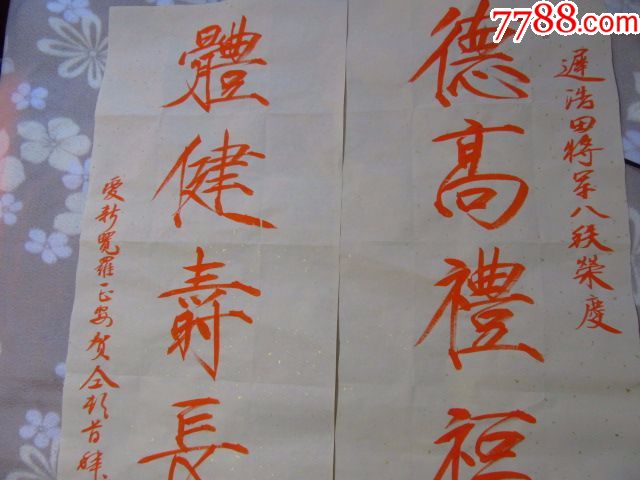 7788.com
遲浩田將軍八秩榮慶
德高禮福
體健壽長
愛新覺羅
賀